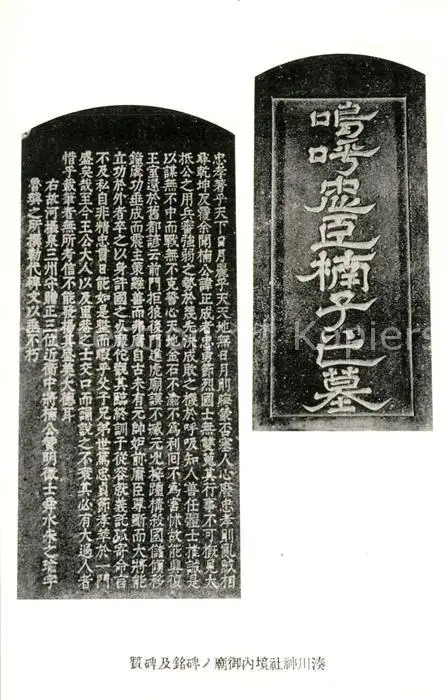 嗚呼忠臣楠子之墓
忠孝著乎天下日月麗乎天天地無日月則晦蒙否塞人心廢忠孝則亂賊相
尋乾坤反覆余聞楠公諱正成者忠勇節烈國士無雙蒐其行事不可概見大
抵公之用兵審強弱之勢於幾先決成敗之機於呼吸知人善任體士推誠是
以謀無不中而戰無不克誓心天地金石不渝不為利回不為害怵故能興復
王室還於舊都諺云前門拒狼後門進虎廟謨不臧元兇接踵構殺國儲傾移
鐘簴功垂成而震主策雖善而弗庸自古未有元帥妒前庸臣專斷而大將能
立功於外者卒之以身許國之死靡佗觀其臨終訓子從容就義託孤寄命言
不及私自非精忠貫日能如是整而暇乎父子兄弟世篤忠貞節孝萃於一門
盛矣哉至今王公大人以及里巷之士交口而誦說之不衰其必有大過人者
惜乎載筆者無所考信不能發揚其盛美大德耳
右故河攝泉三州守贈正三位近衛中將楠公贊明徵士舜水朱之瑜字
魯璵之所撰勒代碑文以垂不朽
湊川神社境內御廟ノ碑銘及碑贊